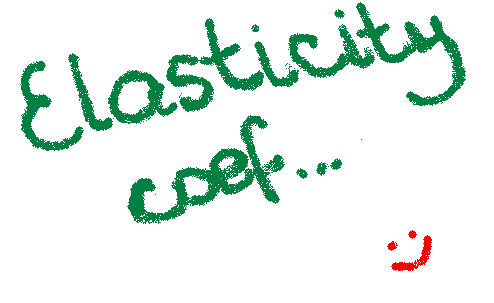 Elasticity
coef...